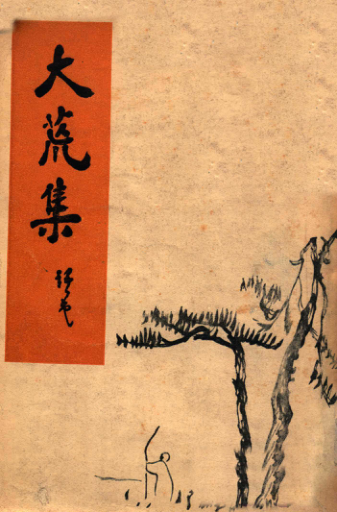 大荒集
語堂